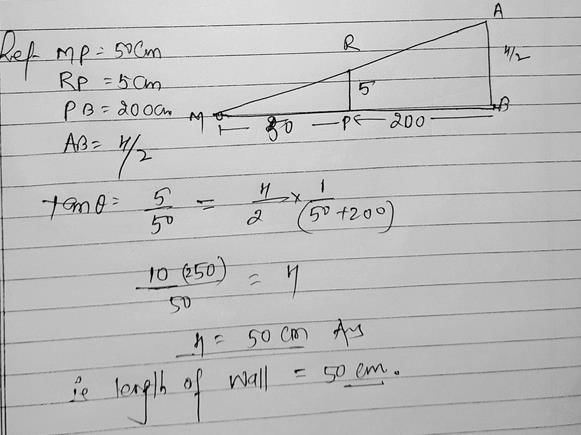 Ref MP = 50 Cm
RP = 5 Cm
PB = 200 cm
AB = H/2
A
R
H/2
5
M
P
B
50
200
tan θ = 5/50 = H/2 × 1/(50+200)
10 (250)/50 = H
H = 50 cm Ans
ie length of wall = 50 cm.